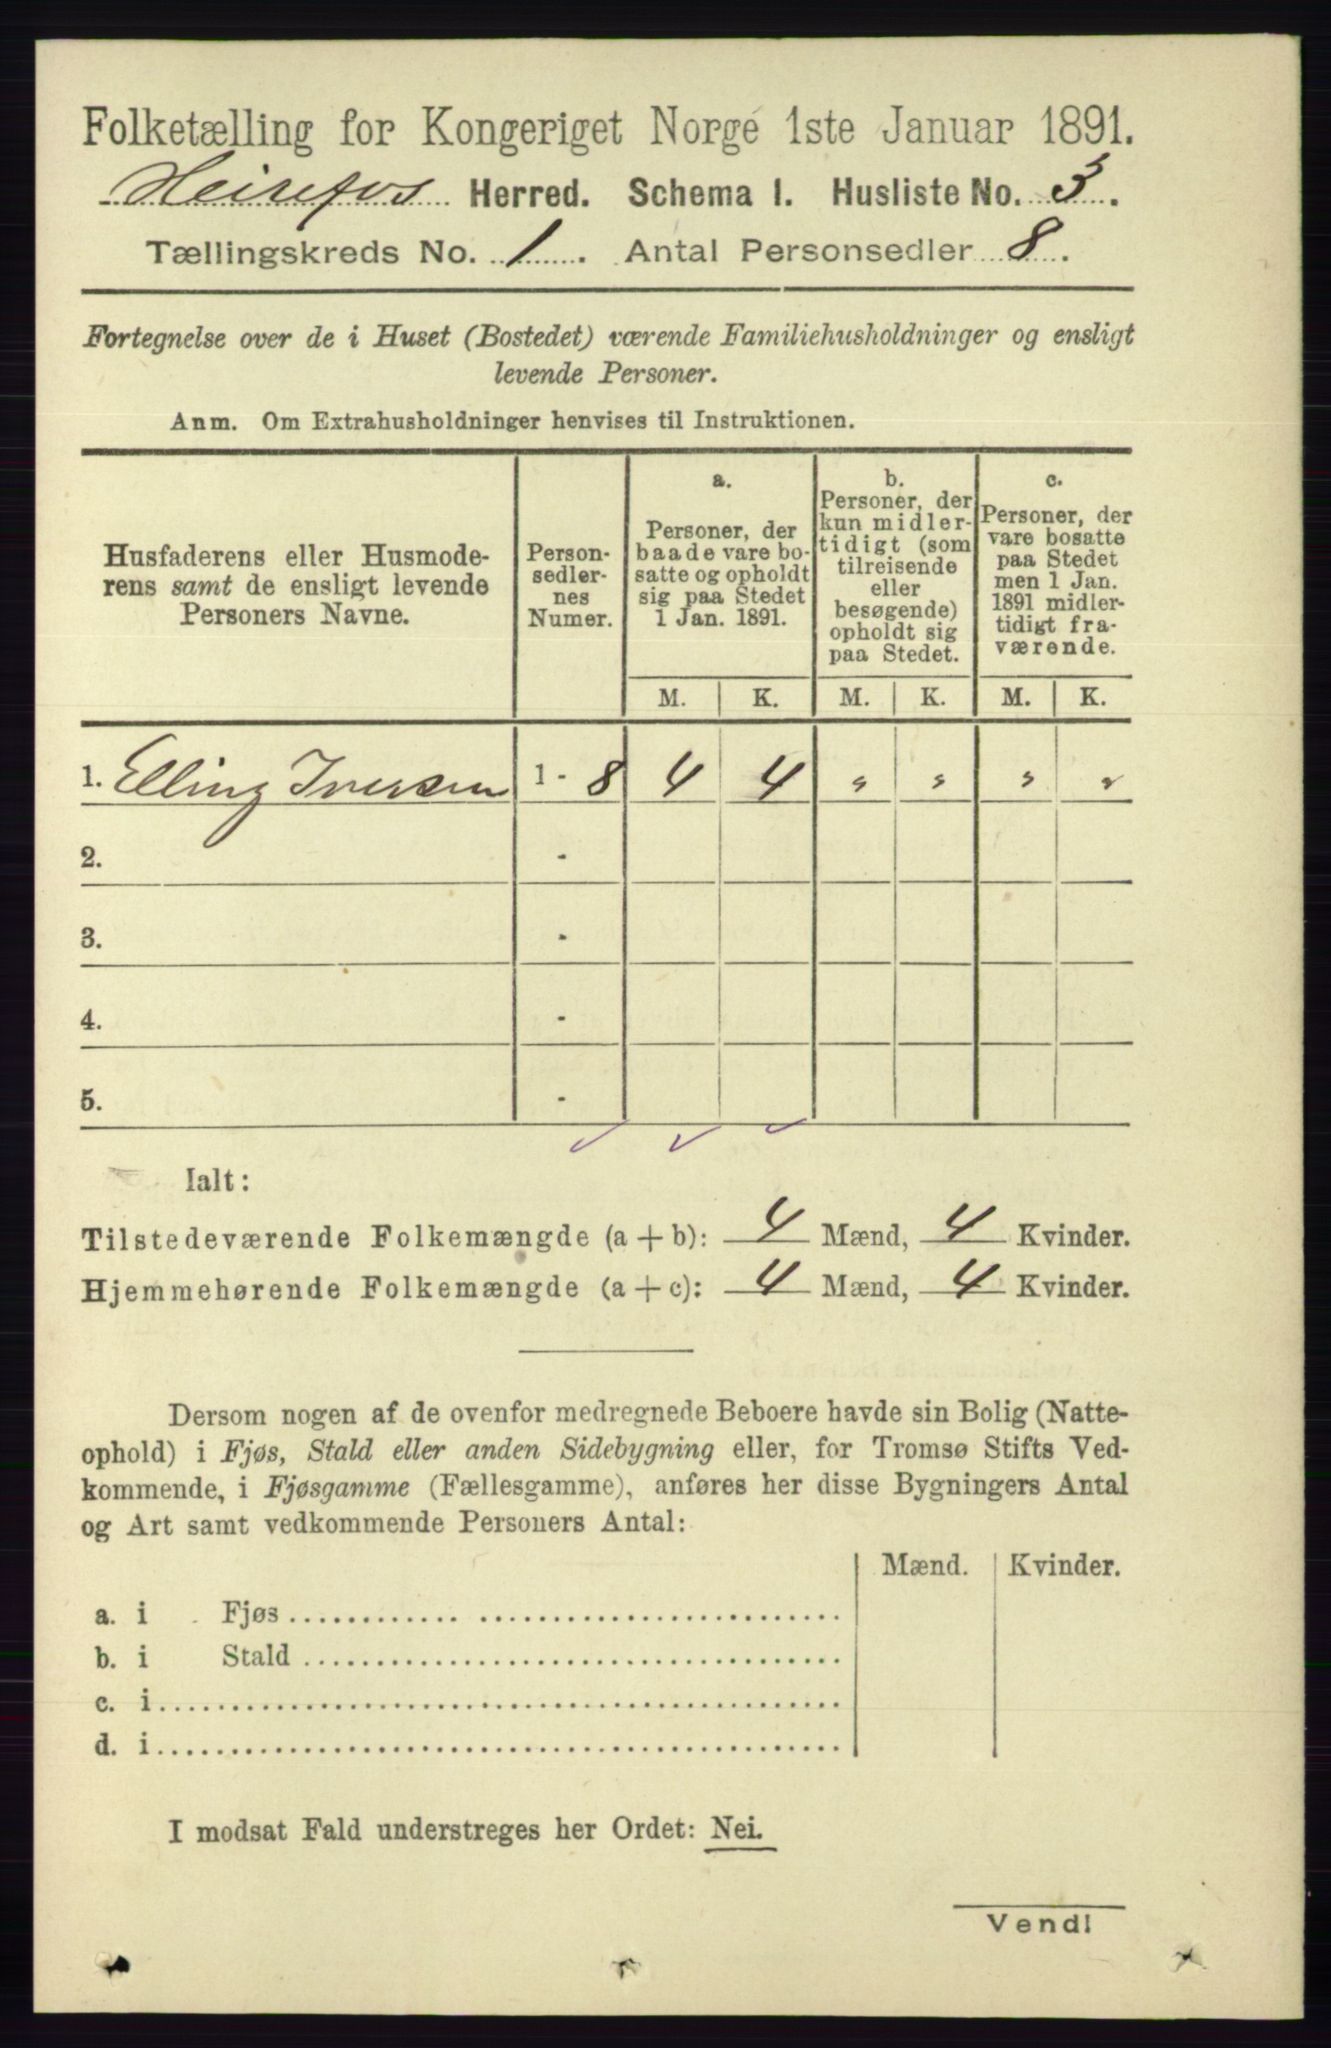 Folketælling for Kongeriget Norge 1ste Januar 1891.
Heirefos Herred. Schema I. Husliste No. 3.
Tællingskreds No. 1. Antal Personsedler 8.
Fortegnelse over de i Huset (Bostedet) værende Familiehusholdninger og ensligt
levende Personer.
Anm. Om Extrahusholdninger henvises til Instruktionen.
Husfaderens eller Husmode-
rens samt de ensligt levende
Personers Navne.
Person-
sedler-
nes
Numer.
a.
Personer, der
baade vare bo-
satte og opholdt
sig paa Stedet
1 Jan. 1891.
b.
Personer, der
kun midler-
tidigt (som
tilreisende
eller
besøgende)
opholdt sig
paa Stedet.
c.
Personer, der
vare bosatte
paa Stedet
men 1 Jan.
1891 midler-
tidigt fra-
værende.
M. K. M. K. M. K.
1. Elling Iversen 1 - 8 4 4 " " " "
2. -
3. -
4. -
5. -
Ialt:
Tilstedeværende Folkemængde (a + b): 4 Mænd, 4 Kvinder.
Hjemmehørende Folkemængde (a + c): 4 Mænd, 4 Kvinder.
Dersom nogen af de ovenfor medregnede Beboere havde sin Bolig (Natte-
ophold) i Fjøs, Stald eller anden Sidebygning eller, for Tromsø Stifts Ved-
kommende, i Fjøsgamme (Fællesgamme), anføres her disse Bygningers Antal
og Art samt vedkommende Personers Antal:
Mænd. Kvinder.
a. i Fjøs
b. i Stald
c. i
d. i
I modsat Fald understreges her Ordet: Nei.
Vend!